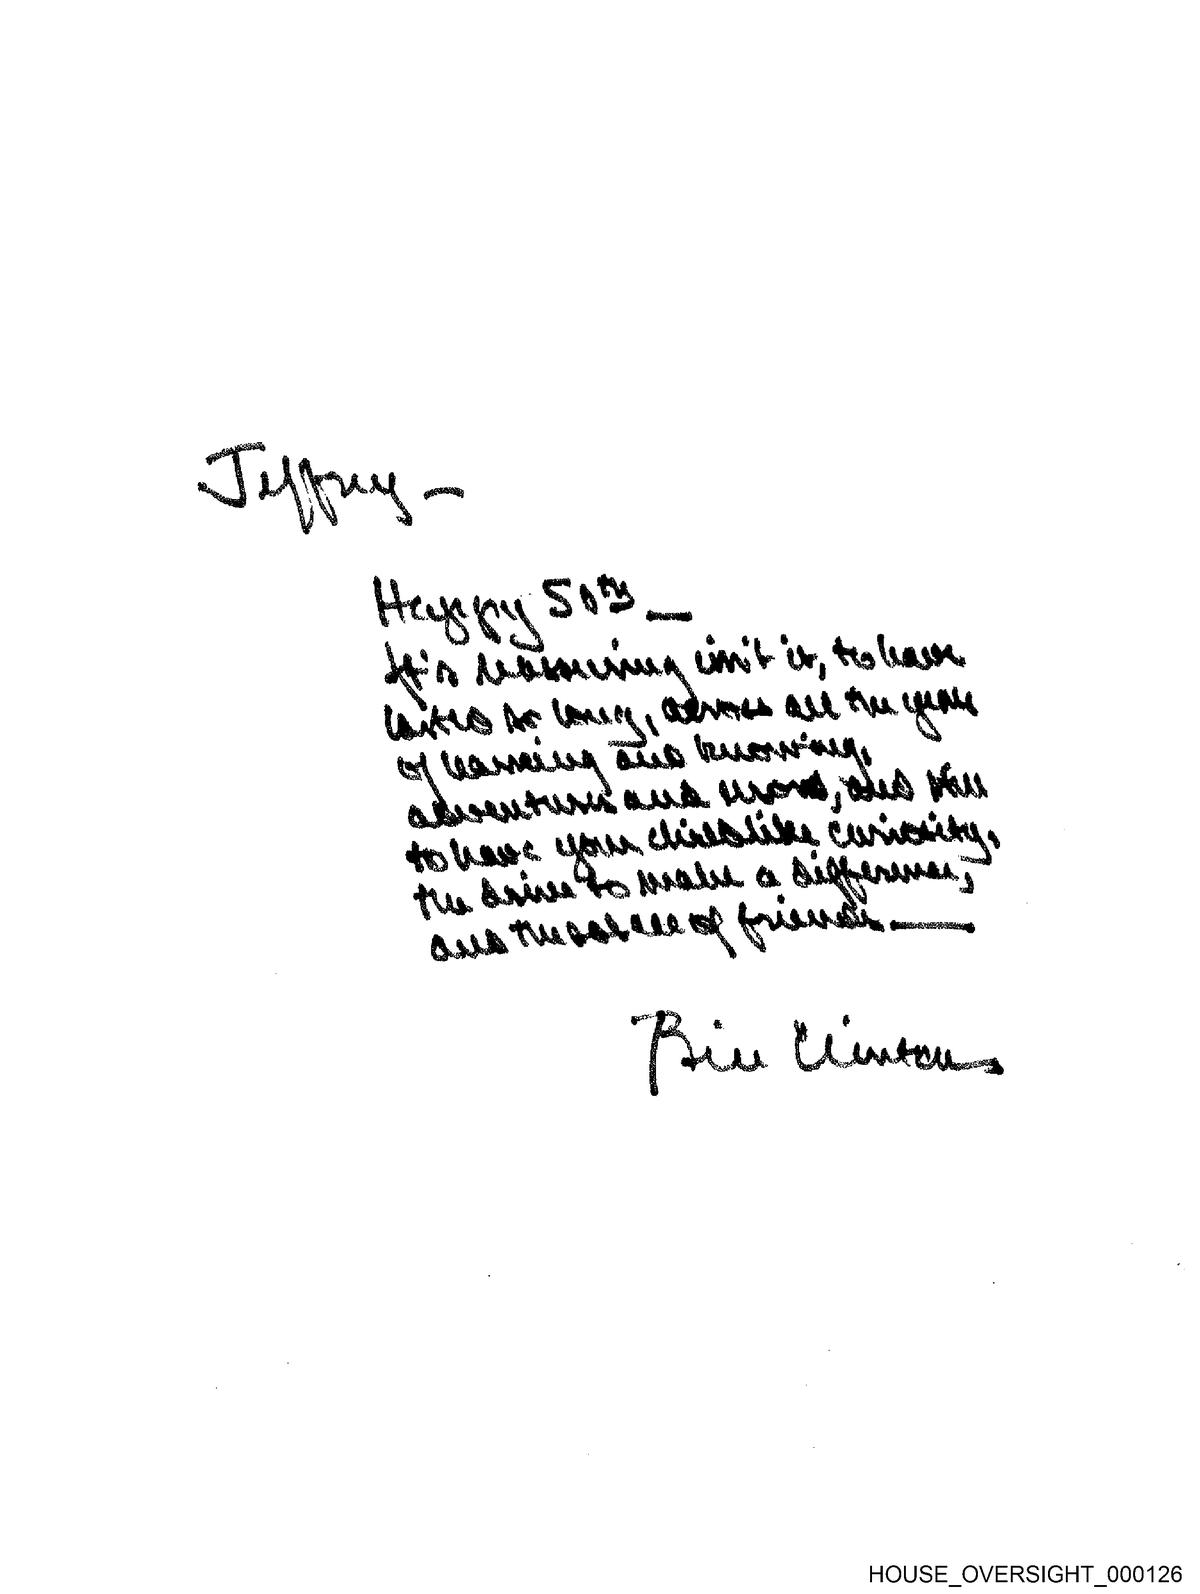 Jeffrey —
Happy 50th —
It's reassuring isn't it, to have
lasted so long, across all the years
of learning and knowing,
adventures and , and still
to have your childlike curiosity,
the drive to make a difference,
and the solace of friends —
Bill Clinton
HOUSE_OVERSIGHT_000126